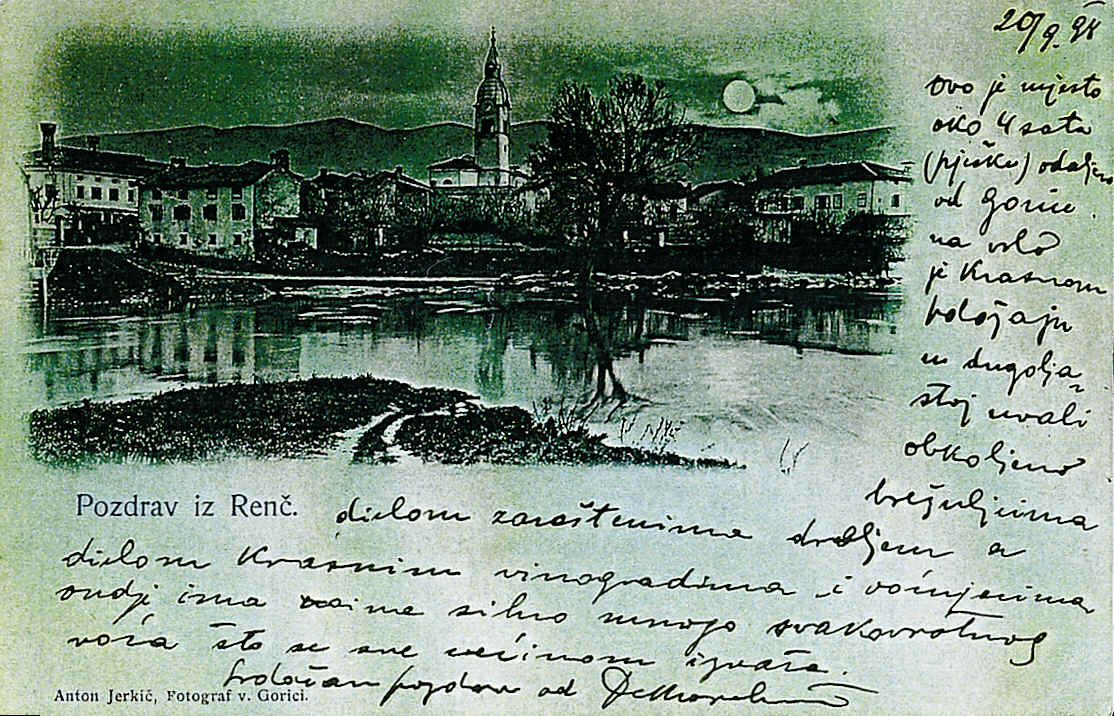 20/9. 98
ovo je mjesto
oko 4 sata
(pješke) odaljeno
od Gorice.
na vrlo
je krasnom
položaju
u dugolja-
stoj uvali
obkoljeno
brežuljcima
Pozdrav iz Renč.
dielom zaraštenima dračljem a
dielom krasnim vinogradima i voćnjacima
ondje ima naime silno mnogo svakovrstnog
voća što se sve većinom izvaža.
Srdačan pozdrav od
Anton Jerkič, Fotograf v. Gorici.